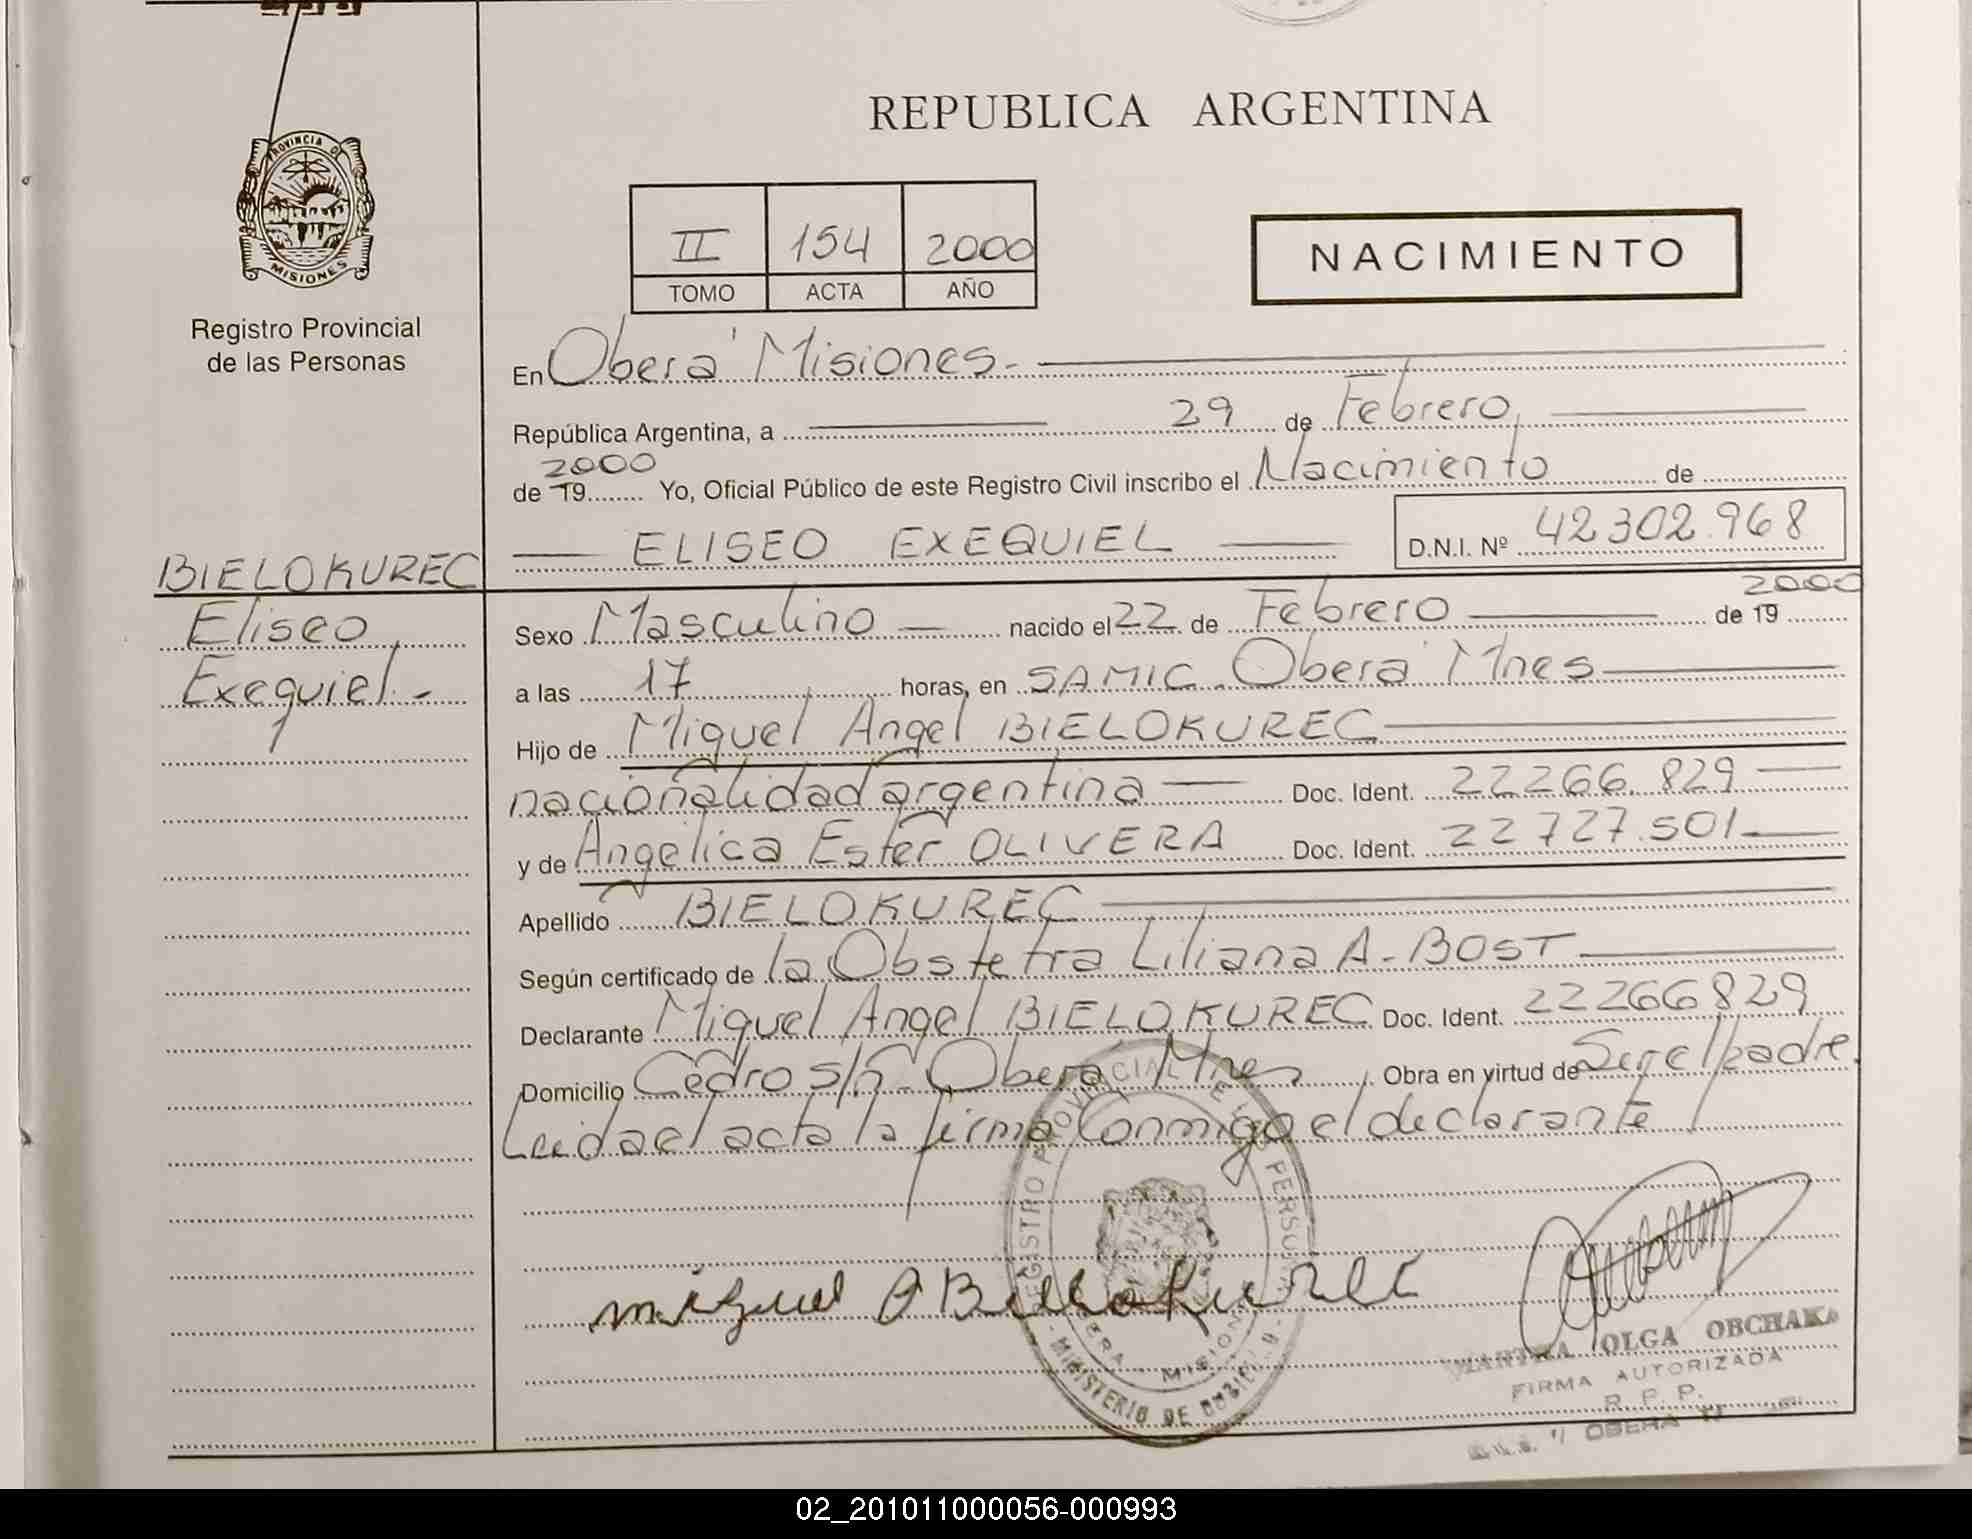 PROVINCIA DE
MISIONES
Registro Provincial
de las Personas
BIELOKUREC
Eliseo
Exequiel.-
REPUBLICA ARGENTINA
II 154 2000
TOMO ACTA AÑO
NACIMIENTO
En Oberá Misiones.-
República Argentina, a 29 de Febrero,
2000
de 19 Yo, Oficial Público de este Registro Civil inscribo el Nacimiento de
ELISEO EXEQUIEL D.N.I. Nº 42302.968
2000
Sexo Masculino nacido el 22 de Febrero de 19
a las 17 horas, en SAMIC. Oberá Mnes
Hijo de Miguel Angel BIELOKUREC
nacionalidad argentina Doc. Ident. 22266.829
y de Angélica Ester OLIVERA Doc. Ident. 22727.501
Apellido BIELOKUREC
Según certificado de la Obstetra Liliana A. BOST
Declarante Miguel Angel BIELOKUREC Doc. Ident. 22266829
Domicilio Cedro s/n Oberá Mnes Obra en virtud de Ser el padre.
Leida el acta la firma conmigo el declarante
REGISTRO PROVINCIAL DE LAS PERSONAS
OBERA MISIONES
MINISTERIO DE GOBIERNO
Miguel A Bielokurec
OLGA OBCHAK
FIRMA AUTORIZADA
R. P. P.
OBERA
02_201011000056-000993